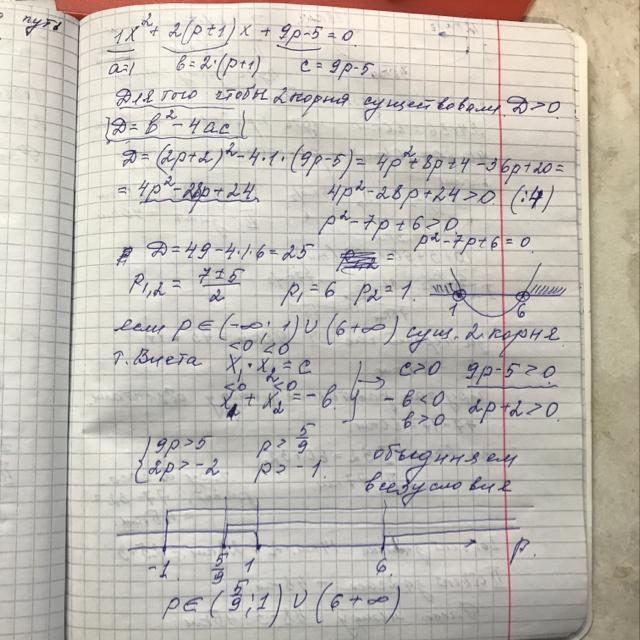 путь
1x² + 2(p+1)x + 9p-5 = 0
a=1 b=2·(p+1) c=9p-5
Для того чтобы 2 корня существовали D>0
D=b²-4ac
D=(2p+2)²-4·1·(9p-5)=4p²+8p+4-36p+20=
=4p²-28p+24 4p²-28p+24>0 (:4)
p²-7p+6>0
D=49-4·1·6=25 p²-7p+6=0
p1,2 = (7±5)/2 p1=6 p2=1.
1 6
если p∈(-∞; 1)∪(6+∞) сущ. 2 корня.
<0 <0
т. Виета x1·x2=c c>0 9p-5>0
<0 <0
x1+x2=-b → -b<0 2p+2>0
b>0
9p>5 p>5/9 объединяем
2p>-2 p>-1 все условия
-1 5/9 1 6 p.
p∈(5/9; 1)∪(6+∞)